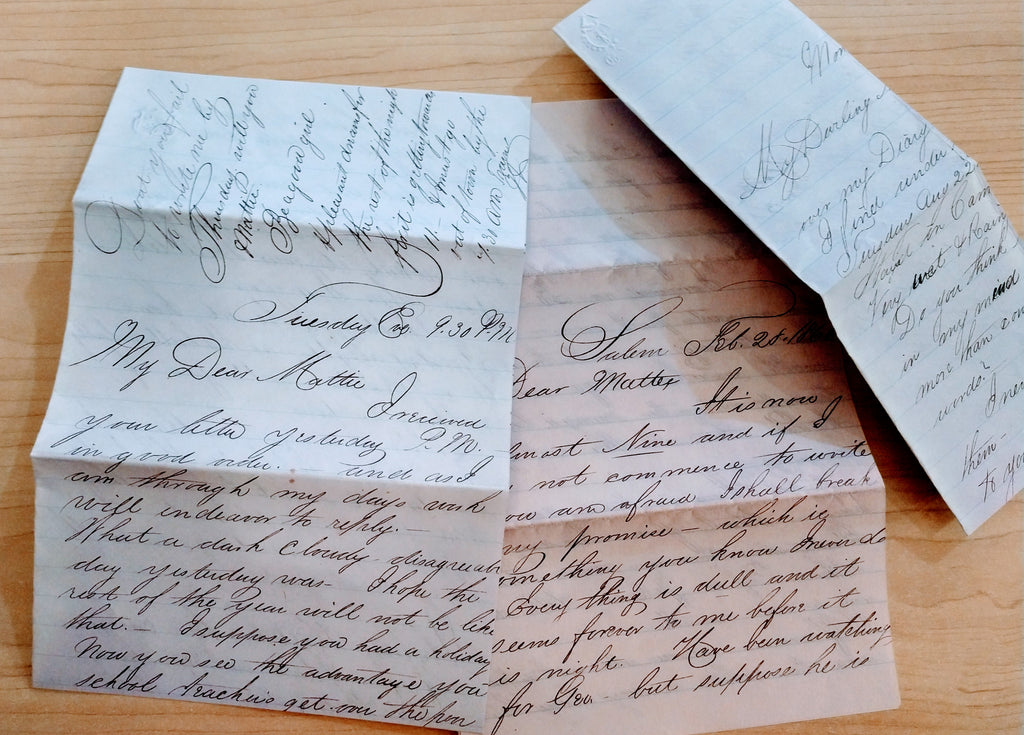 Dont you fail
to write me by
Thursday will you
Mattie.
Be a good girl.
Pleasant dreams for
the rest of the night
for it is getting toward
11 - & must go
out of town by the
4.30 am train
Tuesday Eve 9.30 P.M
My Dear Mattie
I recieved
your letter yesterday P.M.
in good order. - and as I
am through my days work
will endeavor to reply. -
What a dark cloudy disagreeab
day yesterday was - I hope the
rest of the year will not be like
that. - I suppose you had a holiday
Now you see the advantage you
school teachers get over the poor
Salem Feb. 25
Dear Mattie
It is now
lmost Nine and if I
not commence to write
ou am afraid I shall break
my promise - which is
omething you know I never do
Every thing is dull and it
seems forever to me before it
is night. Have been watching
for Geo - but suppose he is
Mon
My Darling
over my Diary
I find under
Tuesday Aug 22
in Cam
Very wet & Rain
Do you think
in my mind
more than
words?
I ne
them -
to yo